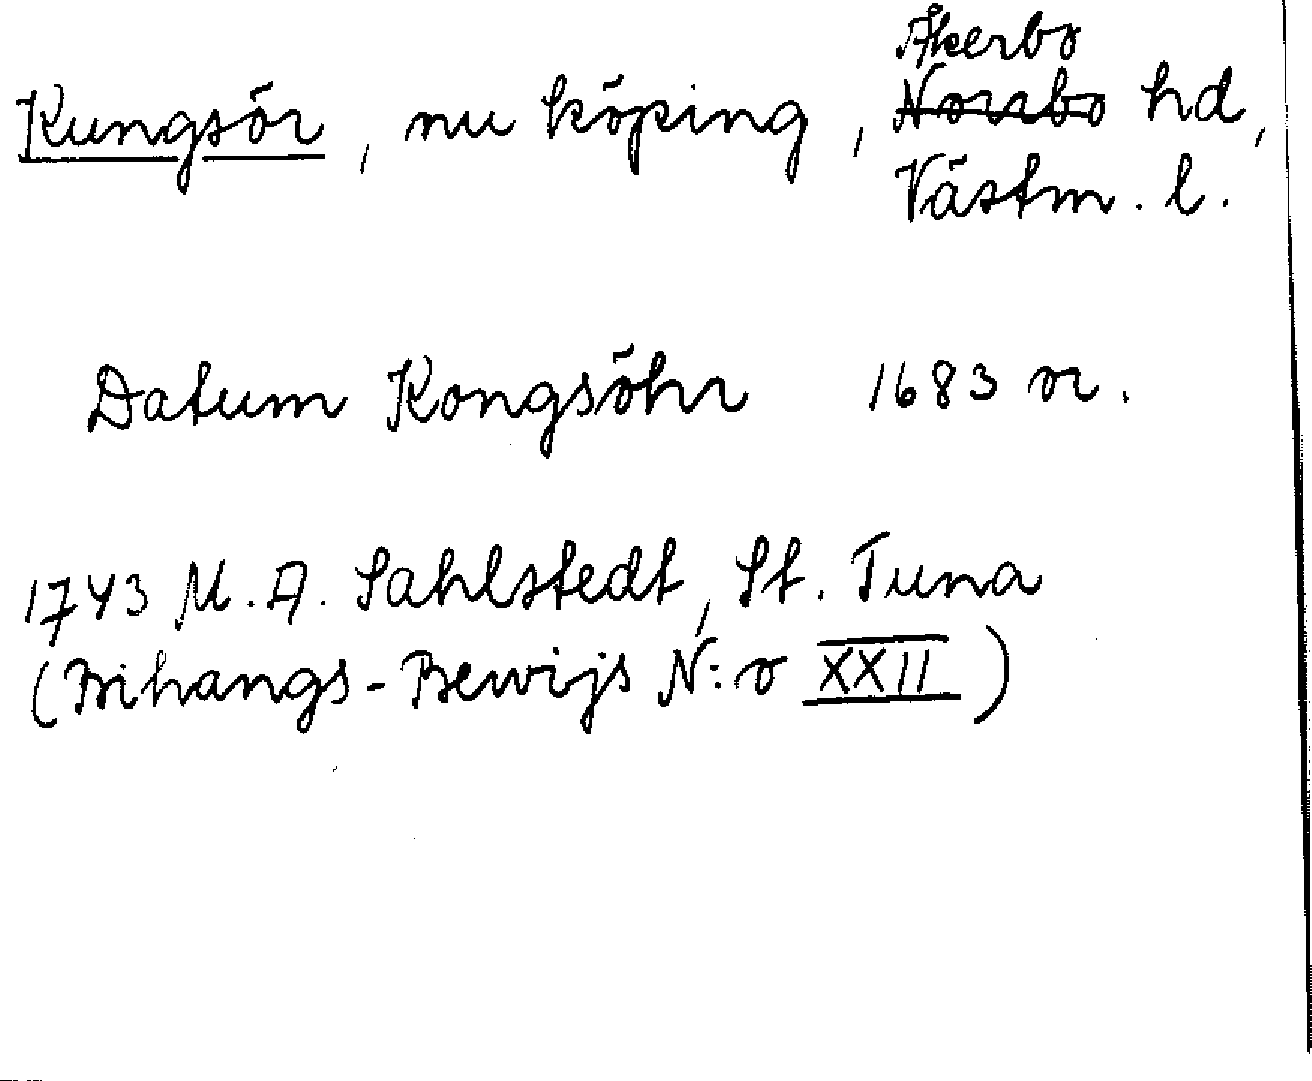 Åkerbo
Kungsör, nu köping, Norrbo hd,
Västm. l.
Datum Kongsöhr 1683 or.
1743 M. A. Sahlstedt, St. Tuna
(Bihangs-Bewijs N:o XXII)